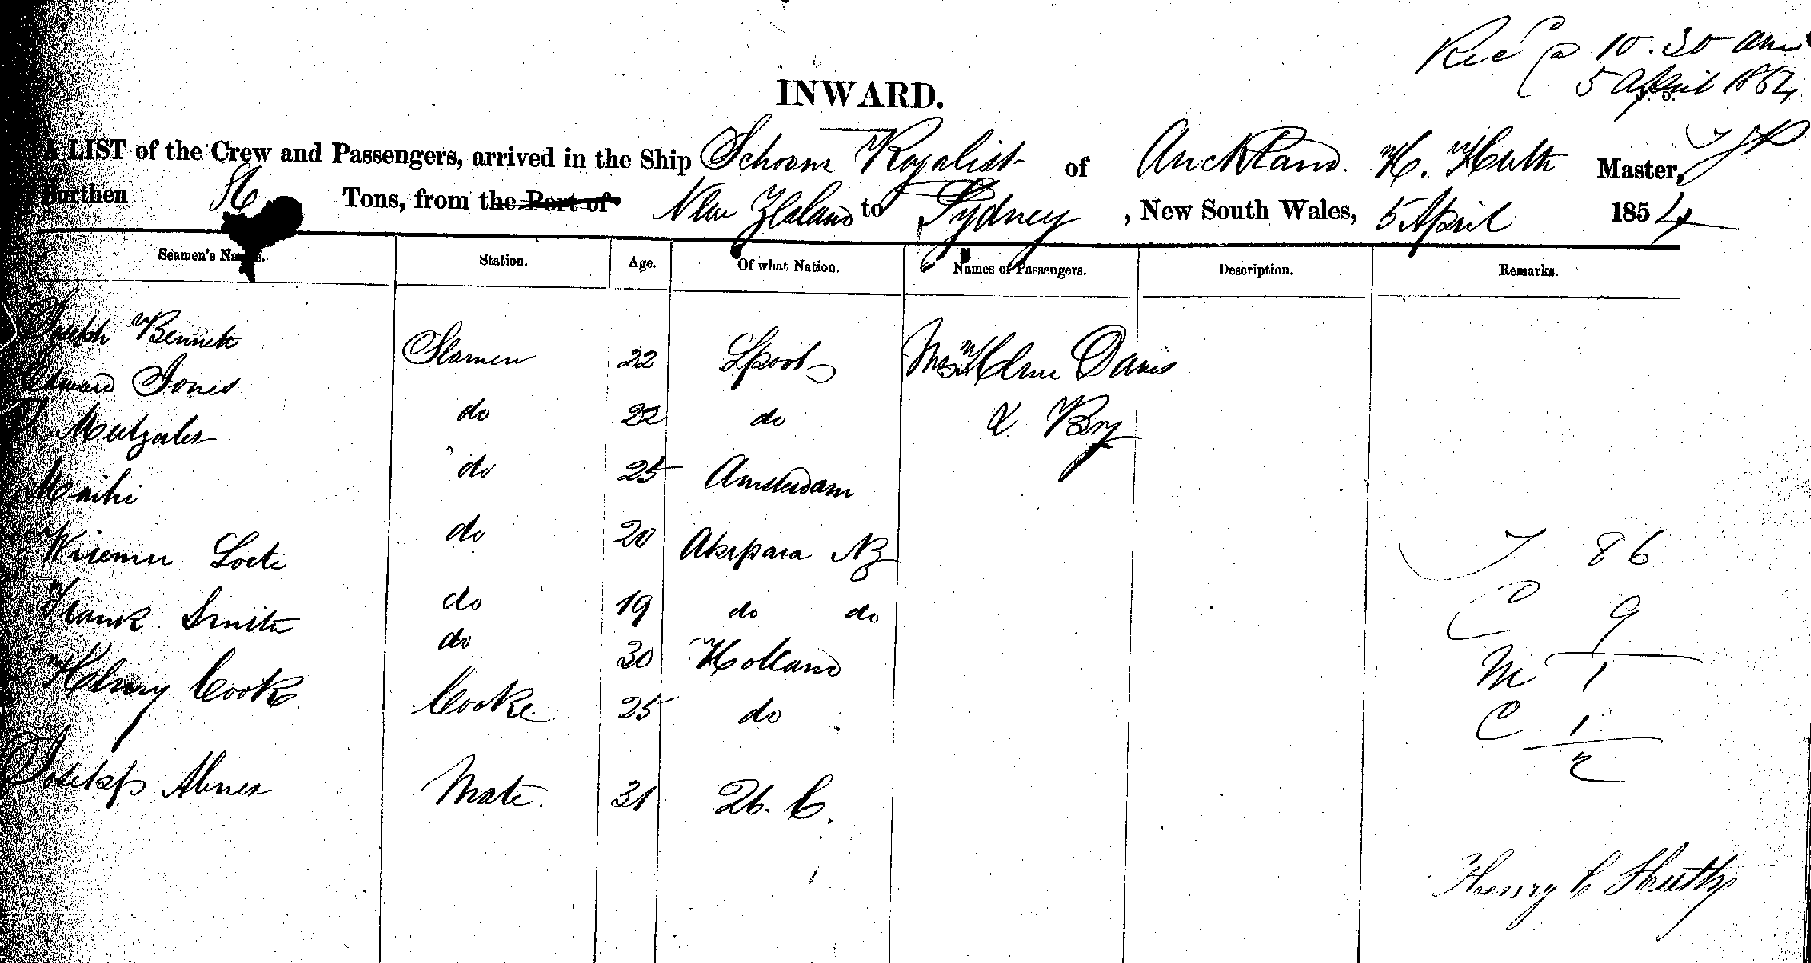 Rec 10.30 am
5 April 1854
INWARD.
A LIST of the Crew and Passengers, arrived in the Ship Schoon Royalist of Auckland. H. Huth Master,
Burthen 86 Tons, from the Port of New Zeland to Sydney, New South Wales, 5 April 1854
Seamen's Names. Station. Age. Of what Nation. Names of Passengers. Description. Remarks.
Joseph Bennett Seamen 22 Lpool Mrs Davis
Edward Jones do 22 do & Boy
do 25 Amsterdam
Maihi do 20 Akapara NZ
Wiremu do 19 do do
Frank Smith do 30 Holland
Henry Cook Cooke 25 do
Mate. 31
T 86
C 9
M 1
C 1
2
Henry C Huth